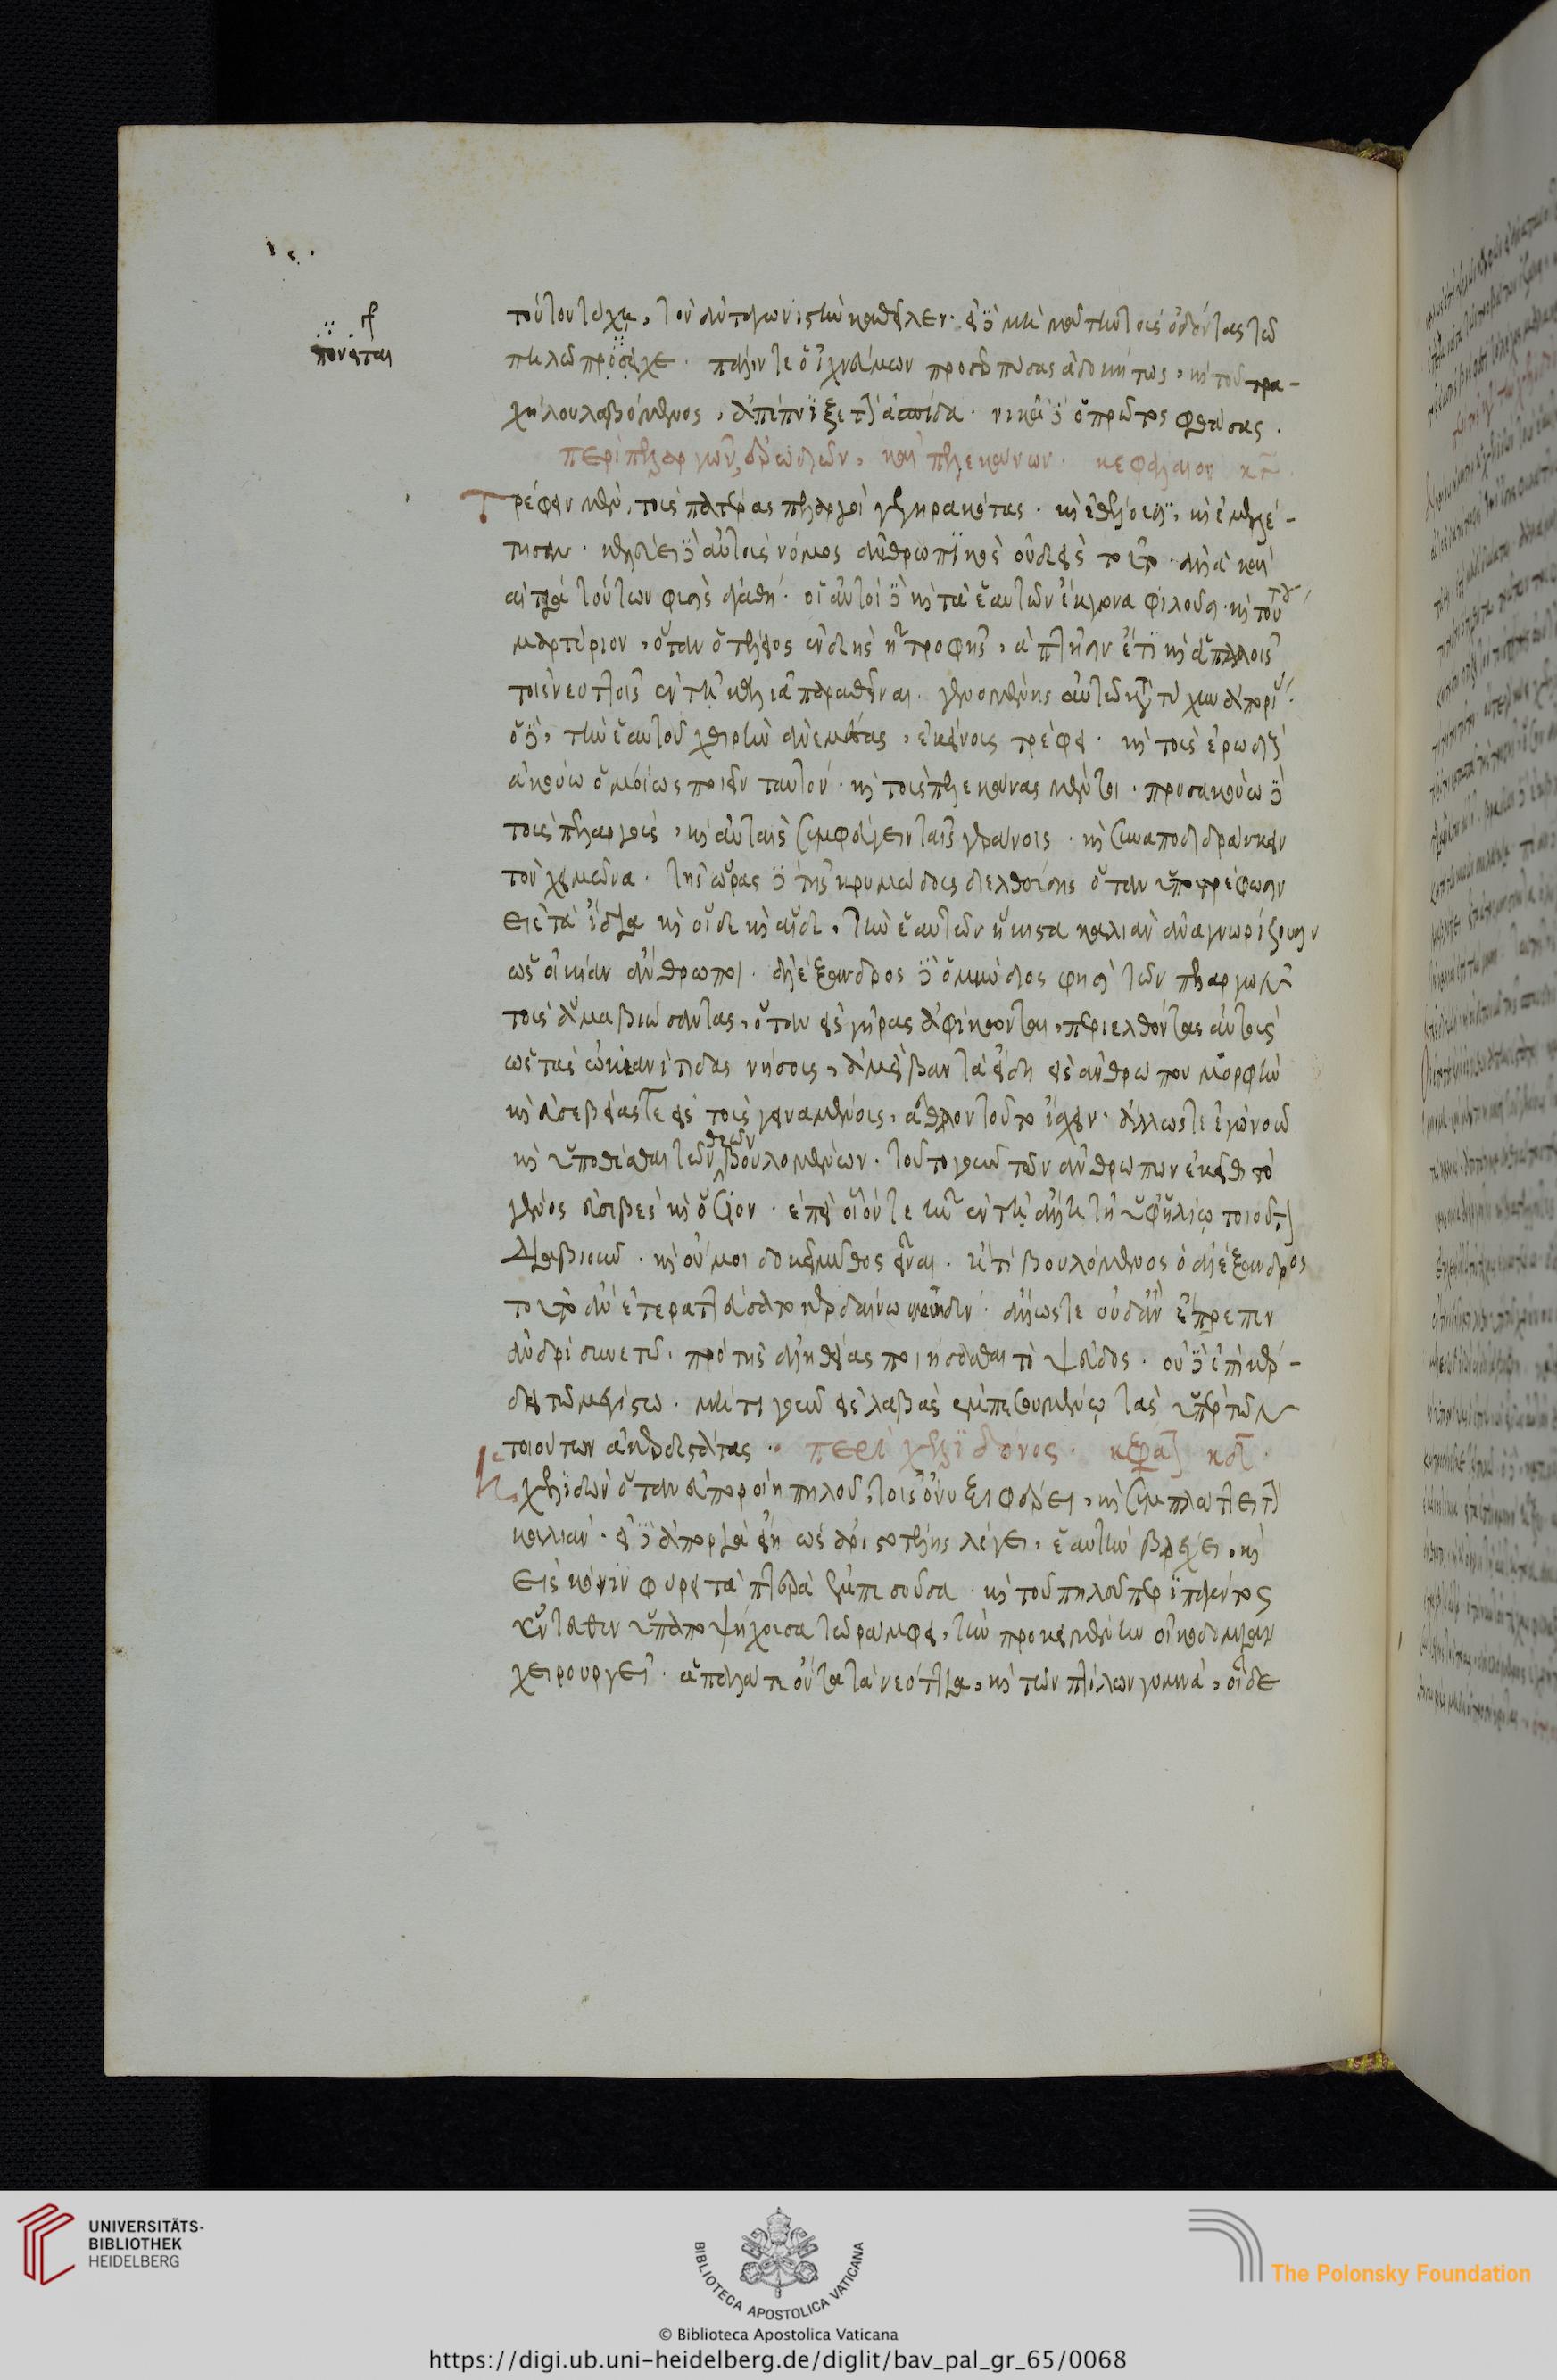 ις.
γρ
πονεῖται
τούτου τύχῃ, τὸν ἀνταγωνιστὴν καθεῖλεν· εἰ δὲ μὴ μάτην τοὺς ὀδόντας τῷ
πηλῷ προσέχει. πάλιν τε ὁ ἰχνεύμων προσερπύσας ἀδοκήτως, καὶ τοῦ τρα-
χήλου λαβόμενος, ἀπέπνιξε τὴν ἀσπίδα. νικᾷ δὲ ὁ πρῶτος φθάσας.
περὶ πελαργῶν, ἐρωδιῶν, καὶ πελεκάνων. κεφάλαιον κγ
Τρέφειν μὲν τοὺς πατέρας πελαργοὶ γεγηρακότας. καὶ ἐθέλουσι, καὶ ἐμελέ-
τησαν. κελεύει δὲ αὐτοὺς νόμος ἀνθρωπικὸς οὐδὲ εἷς τοῦτο. ἀλλὰ καὶ
αἰτία τούτων φύσις ἀγαθή. οἱ αὐτοὶ δὲ καὶ τὰ ἑαυτῶν ἔκγονα φιλοῦσι. καὶ τούτου
μαρτύριον, ὅταν ὁ τέλειος ἐνδεὴς ᾖ τροφῆς, ἀπτῆσιν ἔτι καὶ ἁπαλοῖς
τοῖς νεοττοῖς ἐν τῇ καλιᾷ παραθεῖναι. γενομένης αὐτῷ κατὰ τύχην ἀπορίας
ὁ δὲ, τὴν ἑαυτοῦ χθιζὴν ἀνεμέσας, ἐκείνους τρέφει. καὶ τοὺς ἐρωδιοὺς
ἀκούω ὁμοίως ποιεῖν ταυτόν. καὶ τοὺς πελεκάνας μέντοι. προσακούω δὲ
τοὺς πελαργοὺς, καὶ αὐταῖς συμφεύγειν ταῖς γεράνοις. καὶ συναποδιδράσκειν
τὸν χειμῶνα. τῆς ὥρας δὲ τῆς κρυμώδους διελθούσης ὅταν ὑποστρέψωσιν
εἰς τὰ ἴδια καὶ οἵδε καὶ αἵδε, τὴν ἑαυτῶν ἕκαστα καλιὰν ἀναγνωρίζουσιν
ὡς οἰκίαν ἄνθρωποι. ἀλέξανδρος δὲ ὁ μύνδιος φησὶ τῶν πελαργῶν
τοὺς ἅμα βιώσαντας, ὅταν εἰς γῆρας ἀφίκονται, παρελθόντας αὐτοὺς
ὡς τὰς ὠκεανίτιδας νήσους, ἀμείβειν τὰ εἴδη εἰς ἀνθρώπου μορφὴν
καὶ εὐσεβείας τε εἰς τοὺς γειναμένους, ἆθλον τοῦτο ἴσχειν. ἄλλως τε ἐγὼ νοῶ
καὶ ὑποθέσθαι τῶν θεῶν βουλομένων. τοῦτο γοῦν τῶν ἀνθρώπων ἐκεῖθι τὸ
γένος εὐσεβὲς καὶ ὅσιον. ἐπεὶ οὐχ οἷόν τε ἦν ἐν τῇ ἄλλῃ τῇ ὑφ' ἡλίῳ τοιοῦτον
διαβιοῦν. καὶ οὔ μοι δοκεῖ μῦθος εἶναι. ἢ τί βουλόμενος ὁ ἀλέξανδρος
τοῦτο ἂν ἐτερατεύσατο κερδαίνων μηδέν. ἄλλως τε οὐδ' ἂν ἔπρεπεν
ἀνδρὶ συνετῷ, πρὸ τῆς ἀληθείας ποιήσασθαι τὸ ψεῦδος. οὐδὲ ἐπὶ κέρ-
δει τῷ μεγίστῳ. μήτι γοῦν εἰς λαβὰς ἐμπεσουμένῳ τὰς ὑπὲρ τῶν
τοιούτων ἀκερδεστάτας. περὶ χελιδόνος. κεφάλαιον κδ.
Ἡ χελιδὼν ὅταν εὐποροίη πηλοῦ, τοῖς ὄνυξι φέρει, καὶ συμπλάττει τὴν
καλιάν. εἰ δὲ ἀπορία εἴη ὡς ἀριστοτέλης λέγει, ἑαυτὴν βρέχει, καὶ
εἰς κόνιν φύρει τὰ πτερὰ ἐμπεσοῦσα. καὶ τοῦ πηλοῦ περιπαγέντος
ἐνταῦθεν ὑπαποψήχουσα τῷ ῥάμφει, τὴν προκειμένην οἰκοδομίαν
χειρουργεῖ. ἁπαλά τε ὄντα τὰ νεόττια, καὶ τῶν πτίλων γυμνά, οἶδε
UNIVERSITÄTS-
BIBLIOTHEK
HEIDELBERG
BIBLIOTECA APOSTOLICA VATICANA
The Polonsky Foundation
© Biblioteca Apostolica Vaticana
https://digi.ub.uni-heidelberg.de/diglit/bav_pal_gr_65/0068